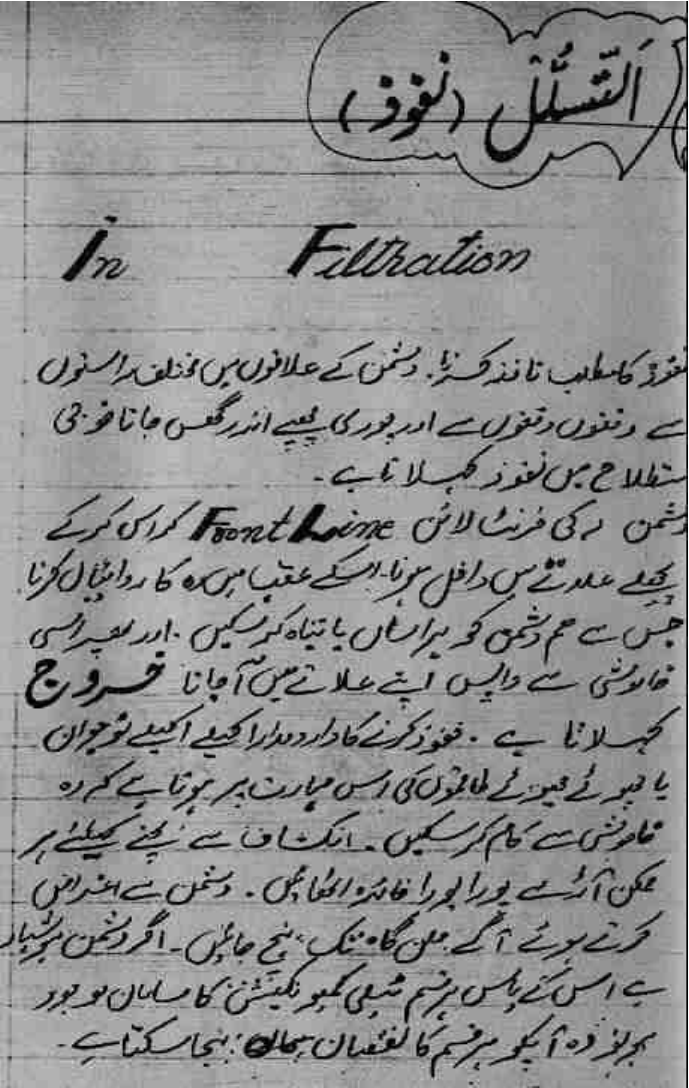 اَلتَّسَلُّل (نفوذ)
In Filtration
نفوذ کا مطلب نافذ کرنا. دشمن کے علاقوں میں مختلف راستوں
سے وقفوں وقفوں سے اور چوری چھپے اندر گھس جانا فوجی
اصطلاح میں نفوذ کہلاتا ہے -
دشمن کی فرنٹ لائن Foont Line کراس کر کے
پچھلے علاقے میں داخل ہونا. اسکے عقب میں رہ کاروائیاں کرنا
جس سے ہم دشمن کو ہراساں یا تباہ کر سکیں . اور پھر اسی
خاموشی سے واپس اپنے علاقے میں آ جانا خروج
کہلاتا ہے . نفوذ کرنے کا دارومدار اکیلے اکیلے نوجوان
یا چھوٹے چھوٹے کی اس مہارت پر ہوتا ہے کہ وہ
خاموشی سے کام کر سکیں . انکشاف سے بچنے کیلئے ہر
ممکن آڑ سے پورا پورا فائدہ اٹھائیں . دشمن سے اعتراض
کرتے ہوئے آگے گاہ تک پہنچ جائیں - اگر دشمن ہوشیار
ہے اس کے پاس ہر قسم ٹیلی کمیونیکیشن کا سامان موجود
ہو تو وہ آپکو ہر قسم کا نقصان پہنچا سکتا ہے -